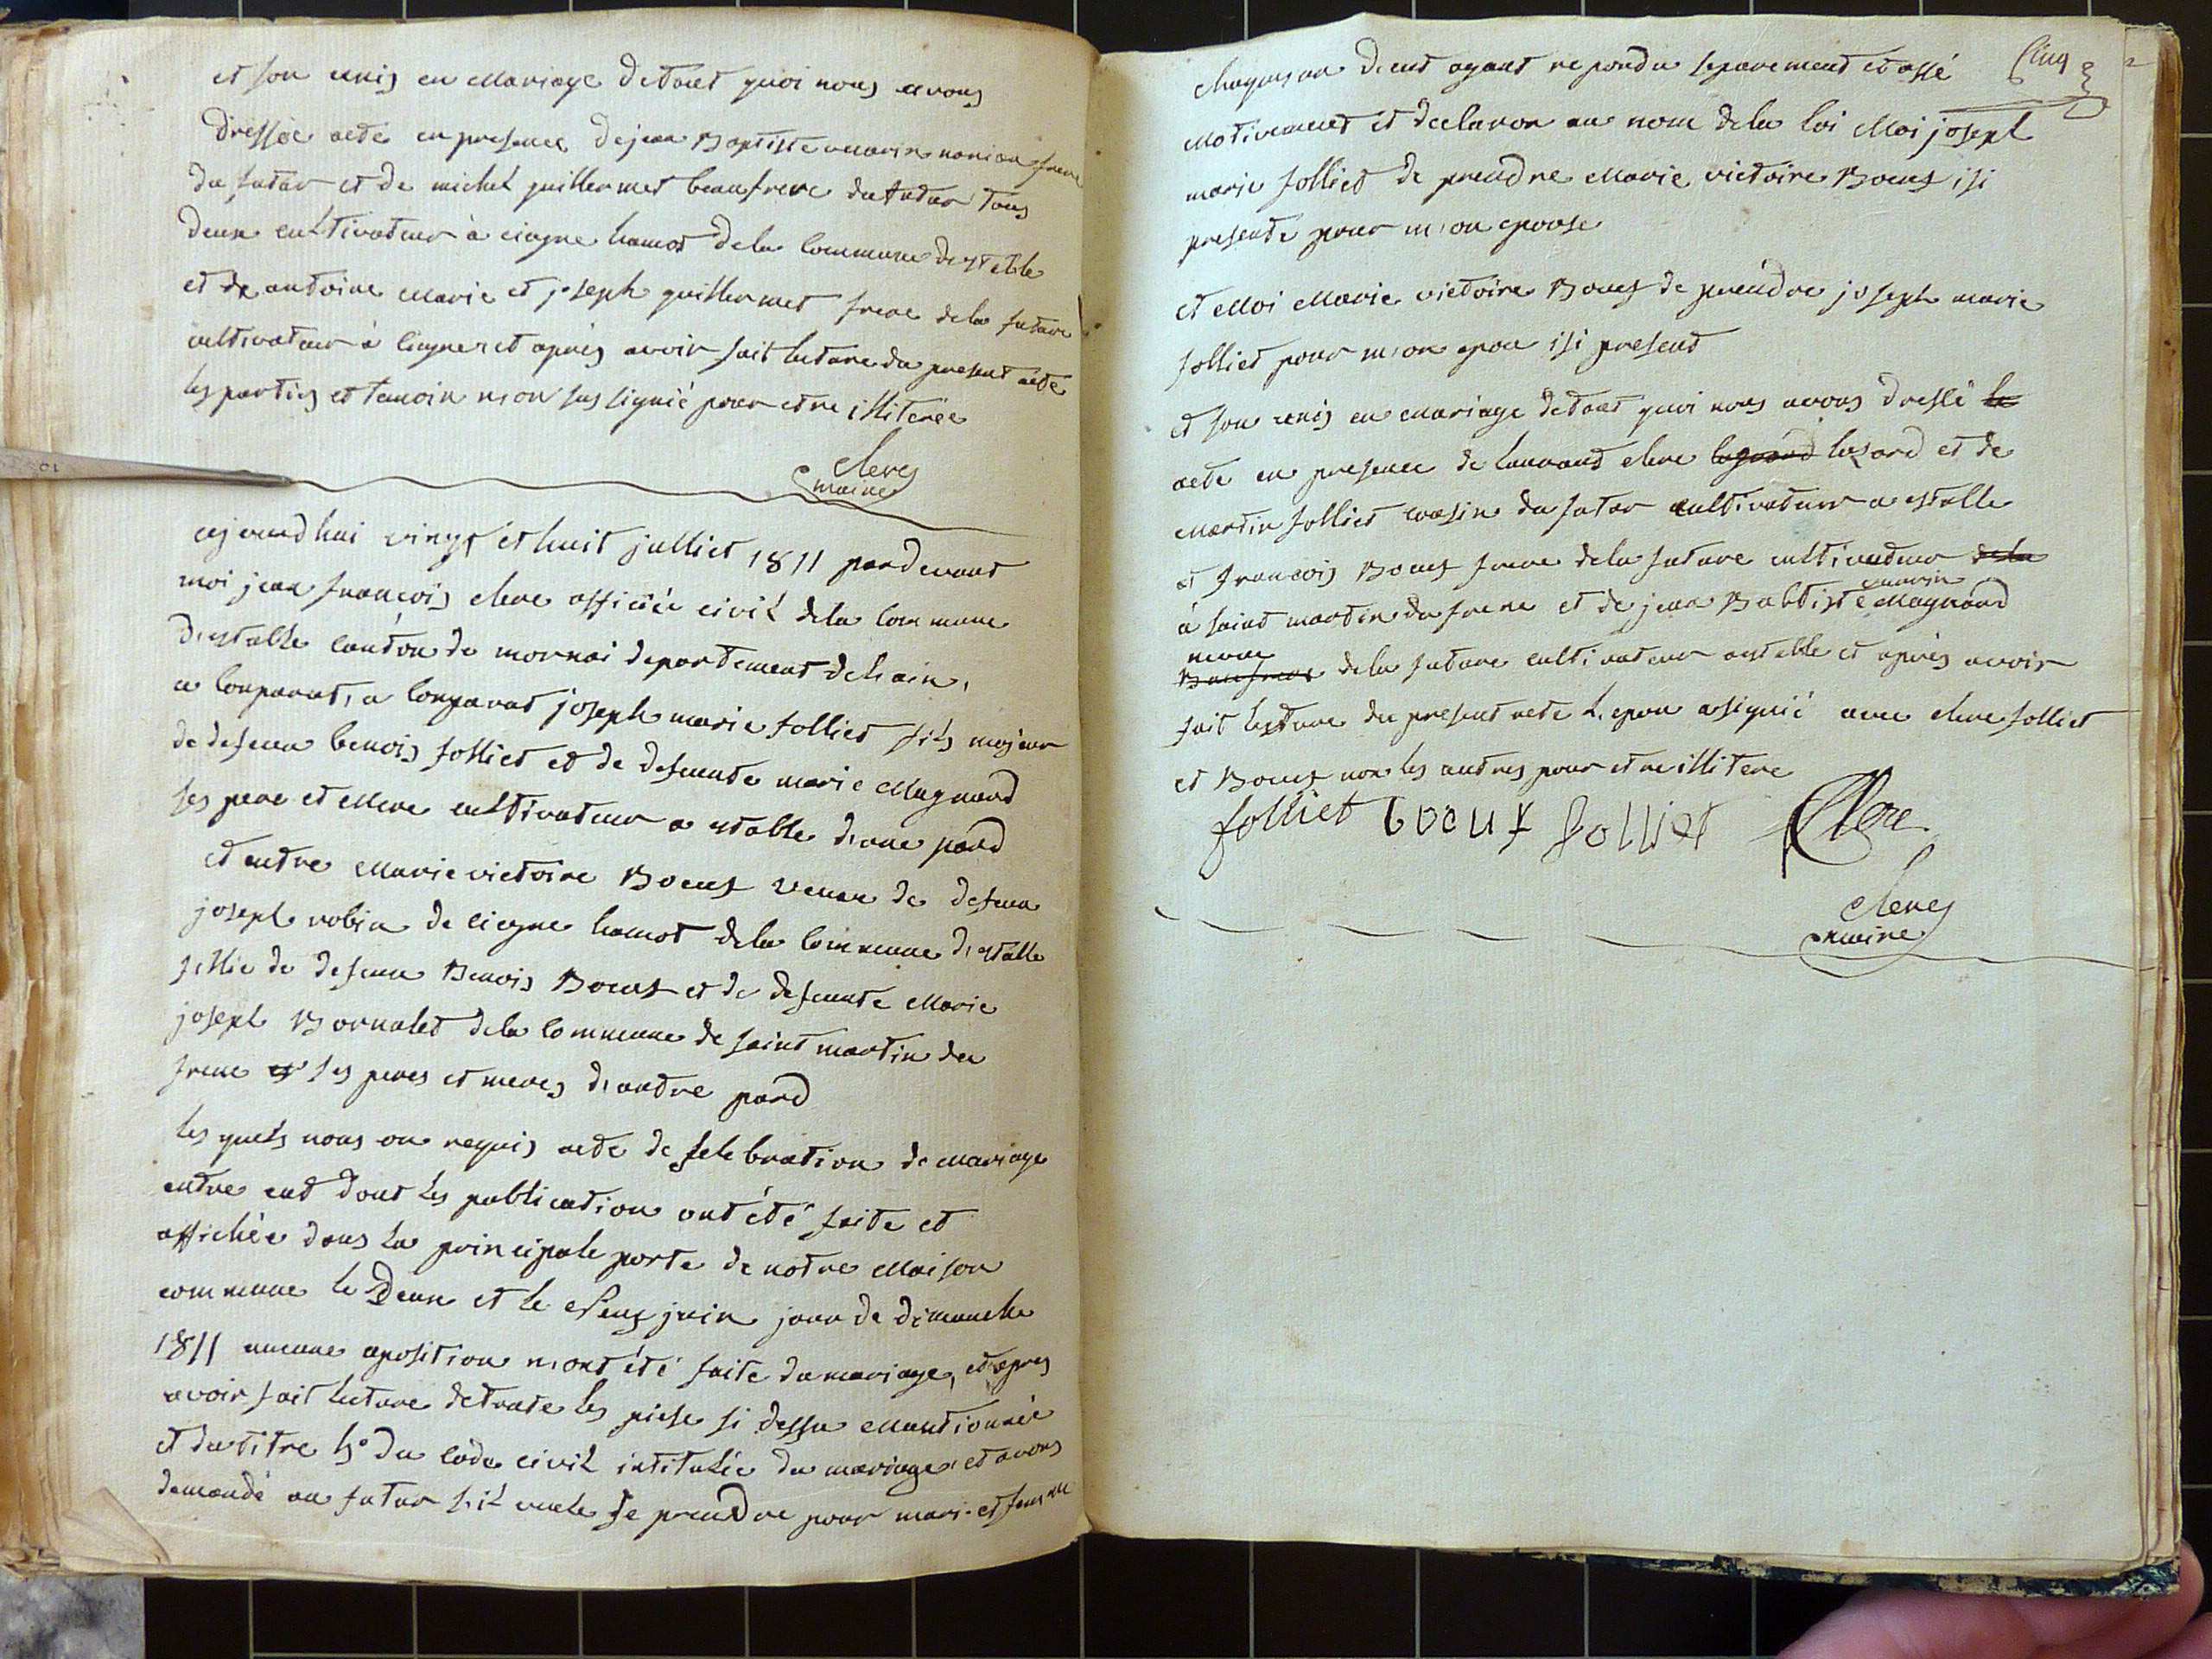 et son unis en Mariage detout quoi nous avons
dressée acte en presence dejean Baptiste marin frere
du futur et de michel guillermet beaufrere dufutur tous
deux cultivateur à ciogne hamot dela Commune destable
et de antoine Marie et joseph guillermet frere dela future
cultivateur à et après avoir fait luture du present acte
les partis et temoin n,on sus signié pour etre illiterée
clerc
maire
aujourdhui vingt et huit julliet 1811 pardevant
moi jean françois clerc officiée civil dela commune
d,estable canton de mornai departement delain,
a comparut, a comparut joseph marie folliet fils majeur
de defeun benois folliet et de defeunte marie Magnard
ses pere et Mere cultivateur a estable d,une pard
et entre Marie victoire Boeuf veuve de defeun
joseph robin de ciogne hamot dela commune d,estable
fillie de defeun Benois Boeuf et de defeunte Marie
joseph Bornalet dela commune de saint martin du
frene ses peres et meres d,autre pard
les quels nous on requis acte de selebration de mariage
entre eud dont les publication ont été faite et
affichée dans la principale porte de notre Maison
commune le Deux et le Neuf juin jour de dimanche
1811 aucune oposition n,ont été faite du mariage, et apres
avoir fait luture detoute les piese si dessu Mantionnée
et dutitre 5° du code civil intitulée du mariage, et avons
demandé au futur s,il veule se prendre pour mari et femme
Cinq
chaquun deud ayant repondu separement et assé
Motivement et declaron au nom dela loi Moi joseph
marie folliet de prendre Marie victoire Boeuf isi
presente pour m,on epouse
et Moi Marie victoire Boeuf de prendre joseph marie
folliet pour m,on epou isi present
et son unis en mariage detout quoi nous avons dressé le
acte en presence de laurand clerc legrand lazard et de
Martin folliet cousin du futur cultivateur a estable
et françois Boeuf frere dela future cultivateur dela
à saint martin du frene et de jean Babtiste marin Magnard
neveu
Beaufrere dela future cultivateur astable et après avoir
fait lecture du present acte L,epou asignié avec clerc folliet
et Boeuf non les autres pour etre illitere
folliet boeuf folliet Clerc
clerc
maire